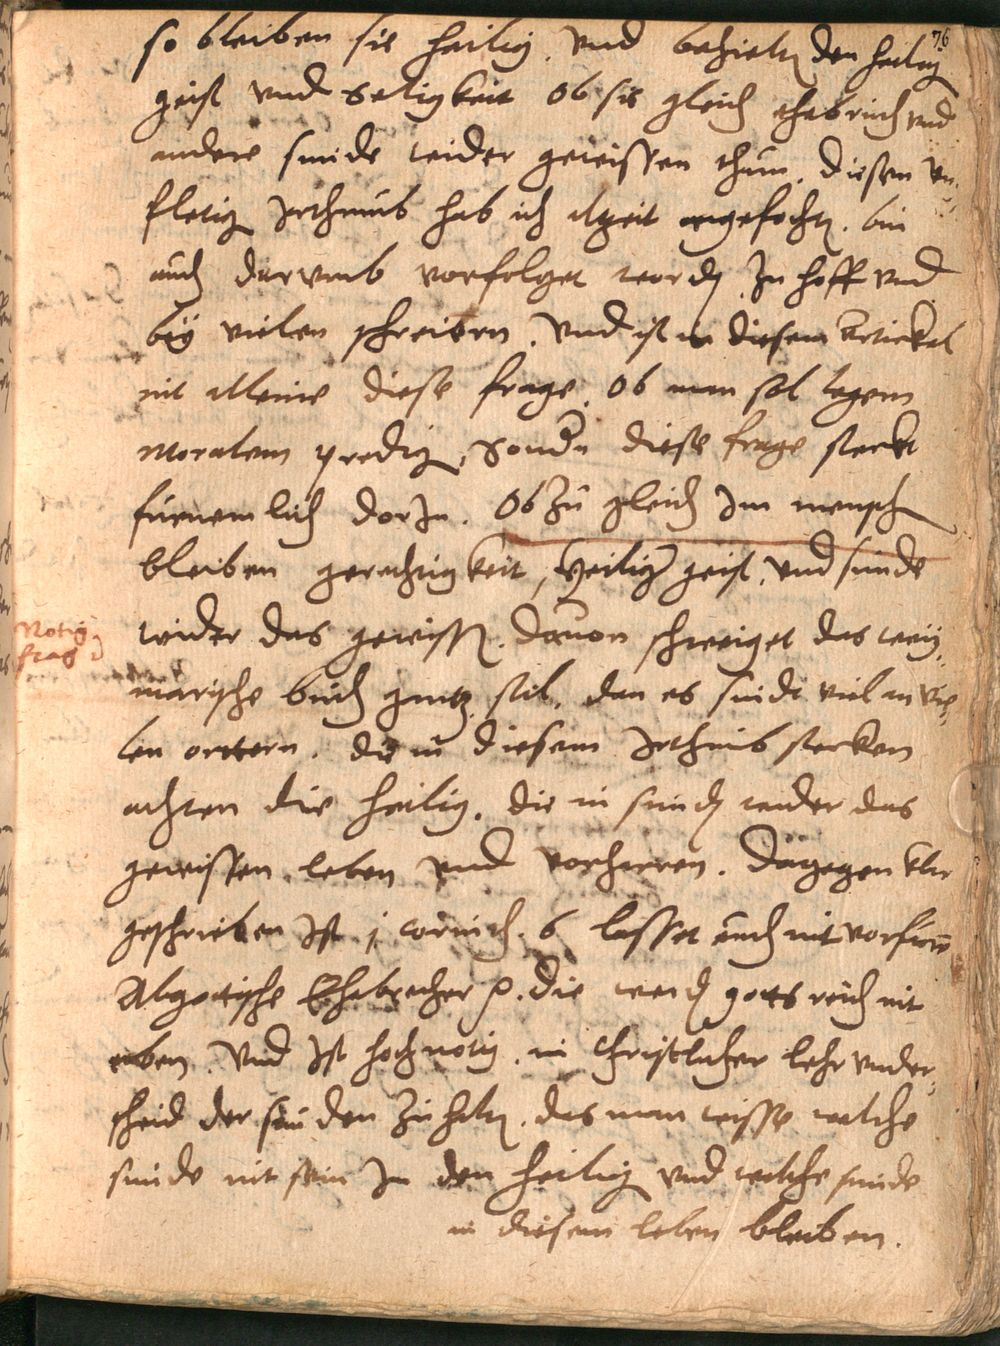 76
so bleiben sie heilig, vnd behielten den heilig
geist vnd Seligkeit Ob sie gleich ehebruch vnd
andere sunde wider gewissen thun. Diesen vn-
fletig Irthumb hab ich alzeit angefochten. bin
auch darumb vorfolget worden Zu hoff vnd
bey vielen schreibern. Vnd ist in diesem Artickel
nit alleine diese frage, Ob man sol legem
moralem predig, Sondern diese frage steckt
furnemlich dorIn. Ob Zu gleich Im mensch
bleiben gerechtigkeit, Heilig geist, vnd sunde
wider das gewissen. Dauon schweiget das wey-
Notig
frag
marische buch gantz stil. dan es sindt viel an vie-
len orttern. die in diesem Irthumb stecken
achten die heilig, die in sunden wider das
gewissen leben vnd vorharren. Dagegen klar
geschrieben Ist j corinth. 6 lasset euch nit vorfuren
Abgottische Ehebrecher p. die werden gotts reich nit
erben. Vnd Ist hoch notig, in Christlicher lehr vnder-
scheid der sunden Zu halten, das man wisse welche
sunde nit sein In den heilig vnd welche sunde
in diesem leben bleiben.